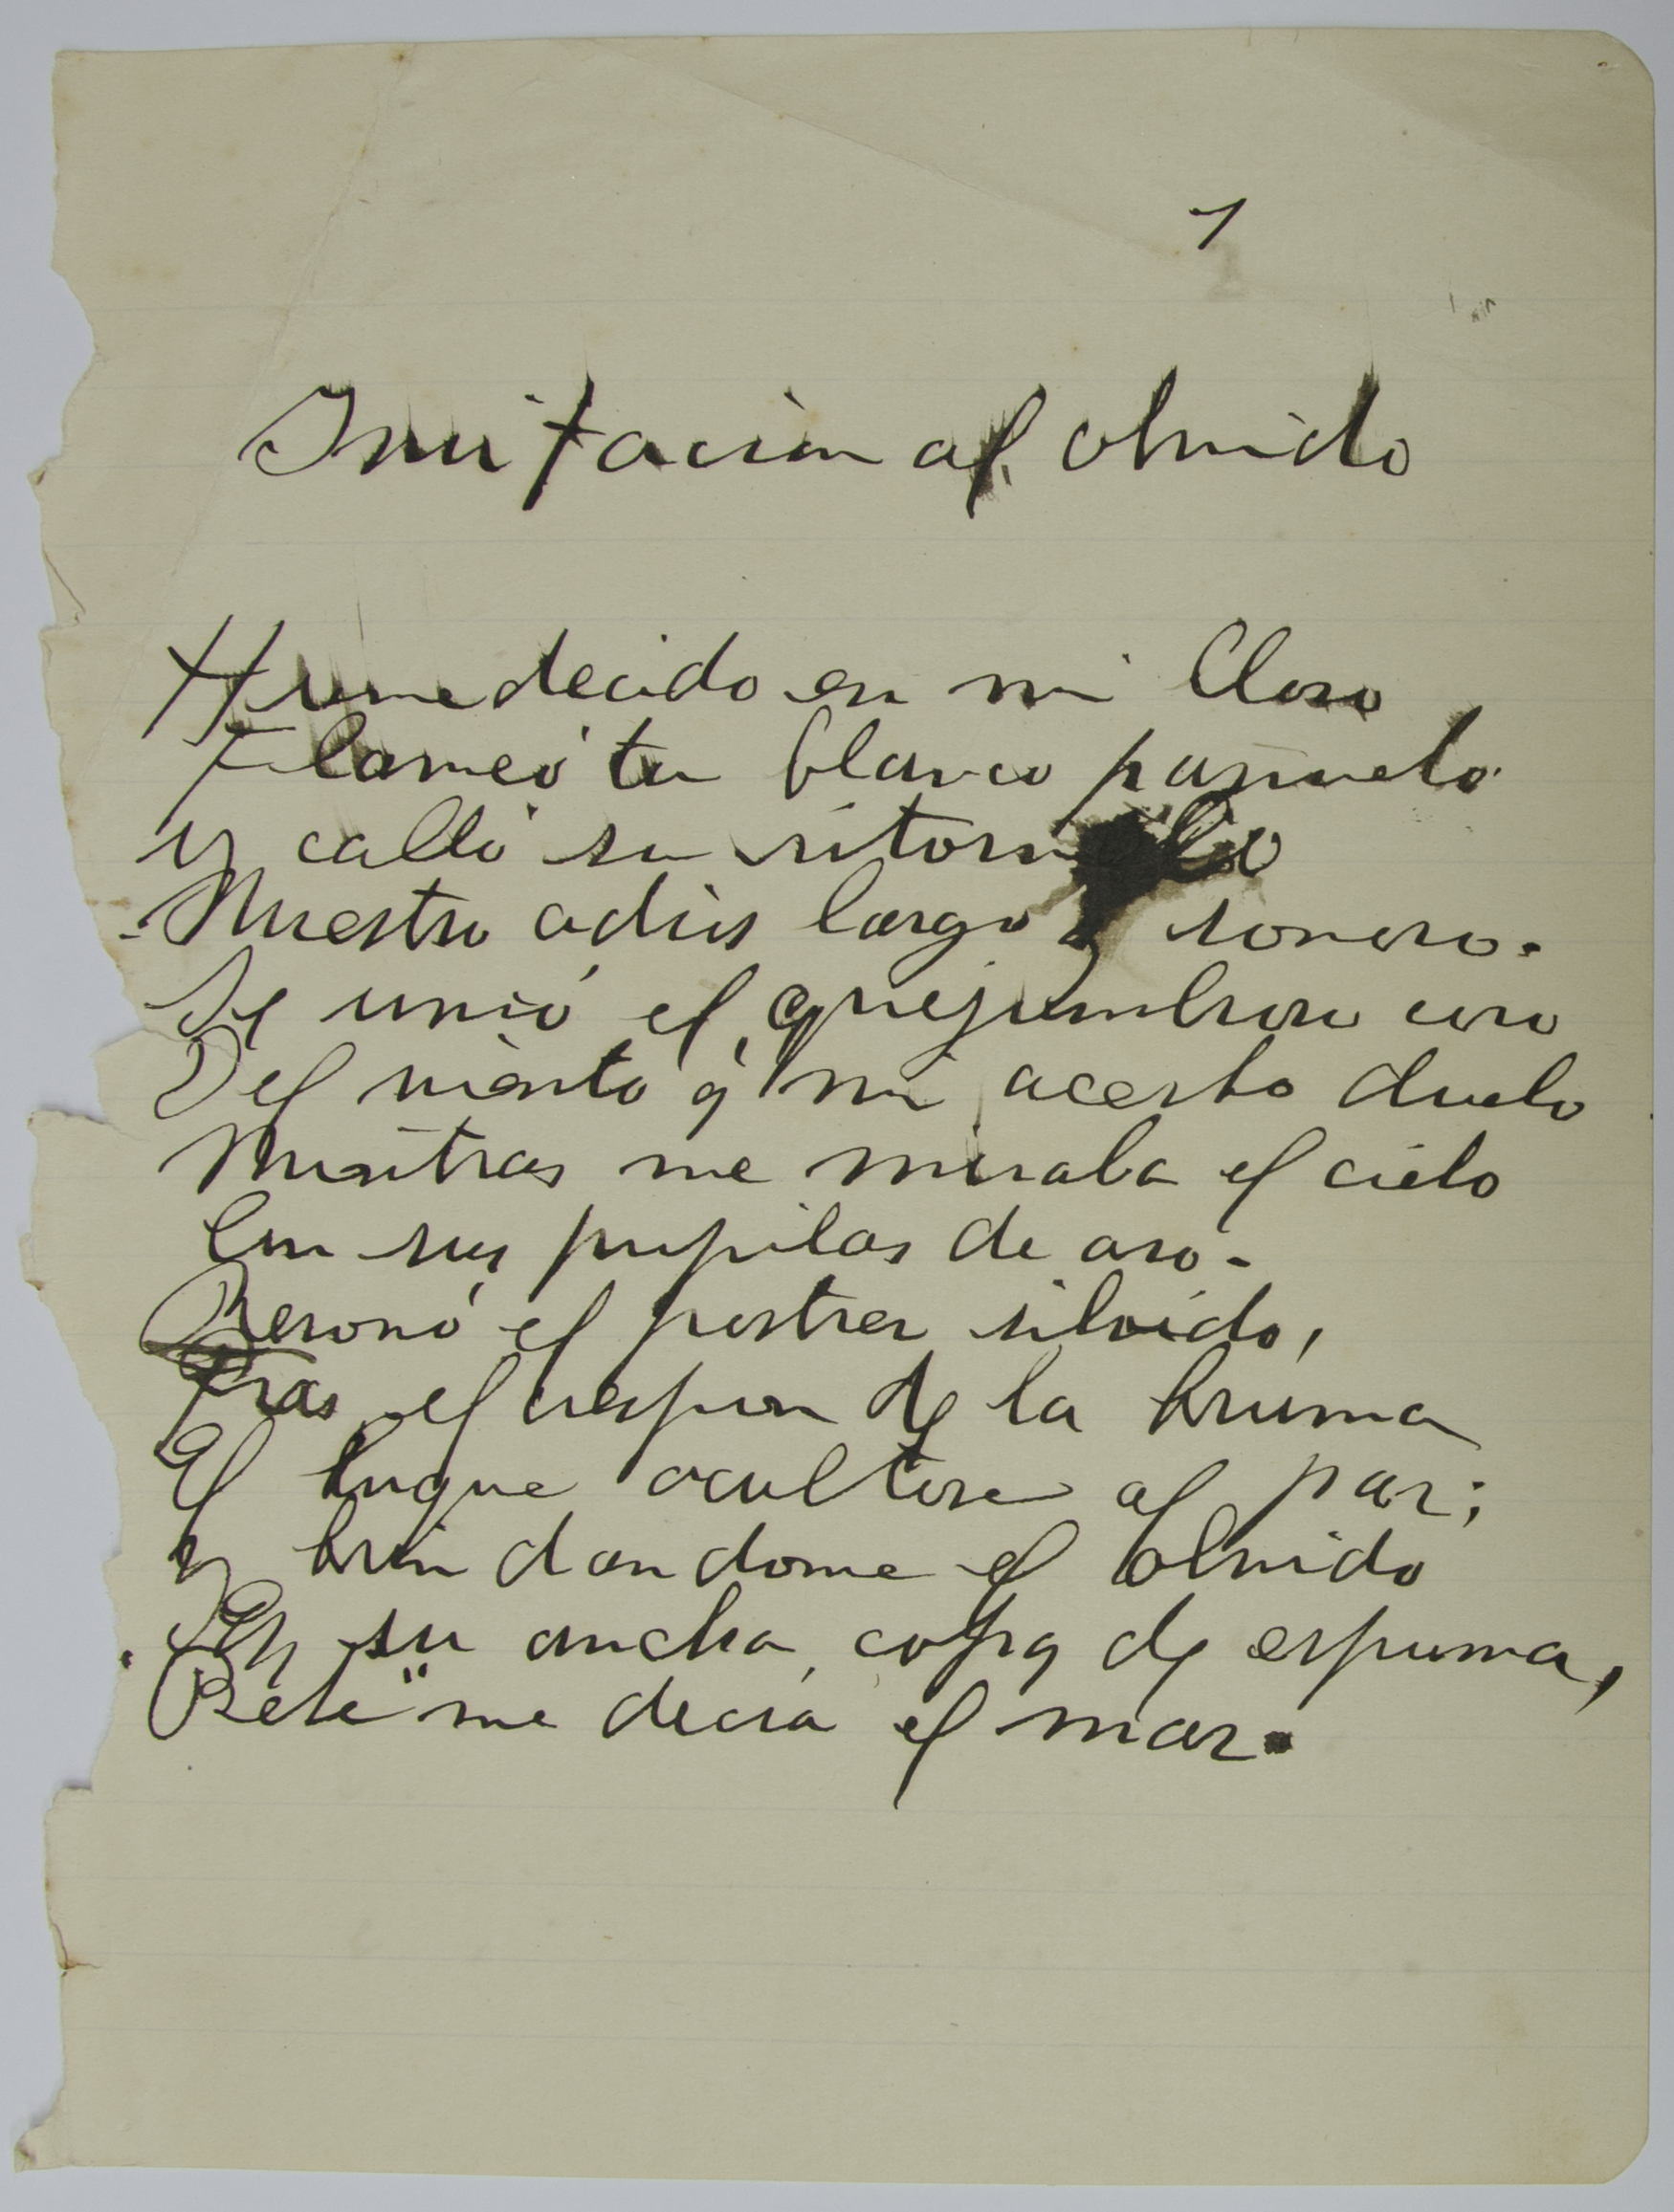 1
Invitación al olvido
Humedecido en mi lloro
Flameó tu blanco pañuelo
y calló su ritornelo
Nuestro adiós largo y sonoro.
Se unió el quejumbroso coro
Del viento á mi acerbo duelo
Mientras me miraba el cielo
Con sus pupilas de oro.
Resonó el postrer silvido,
Tras el crespon de la bruma
El buque ocultose al par;
y brindandome el olvido
En su ancha copa de espuma,
"Bebe" me decía el mar.